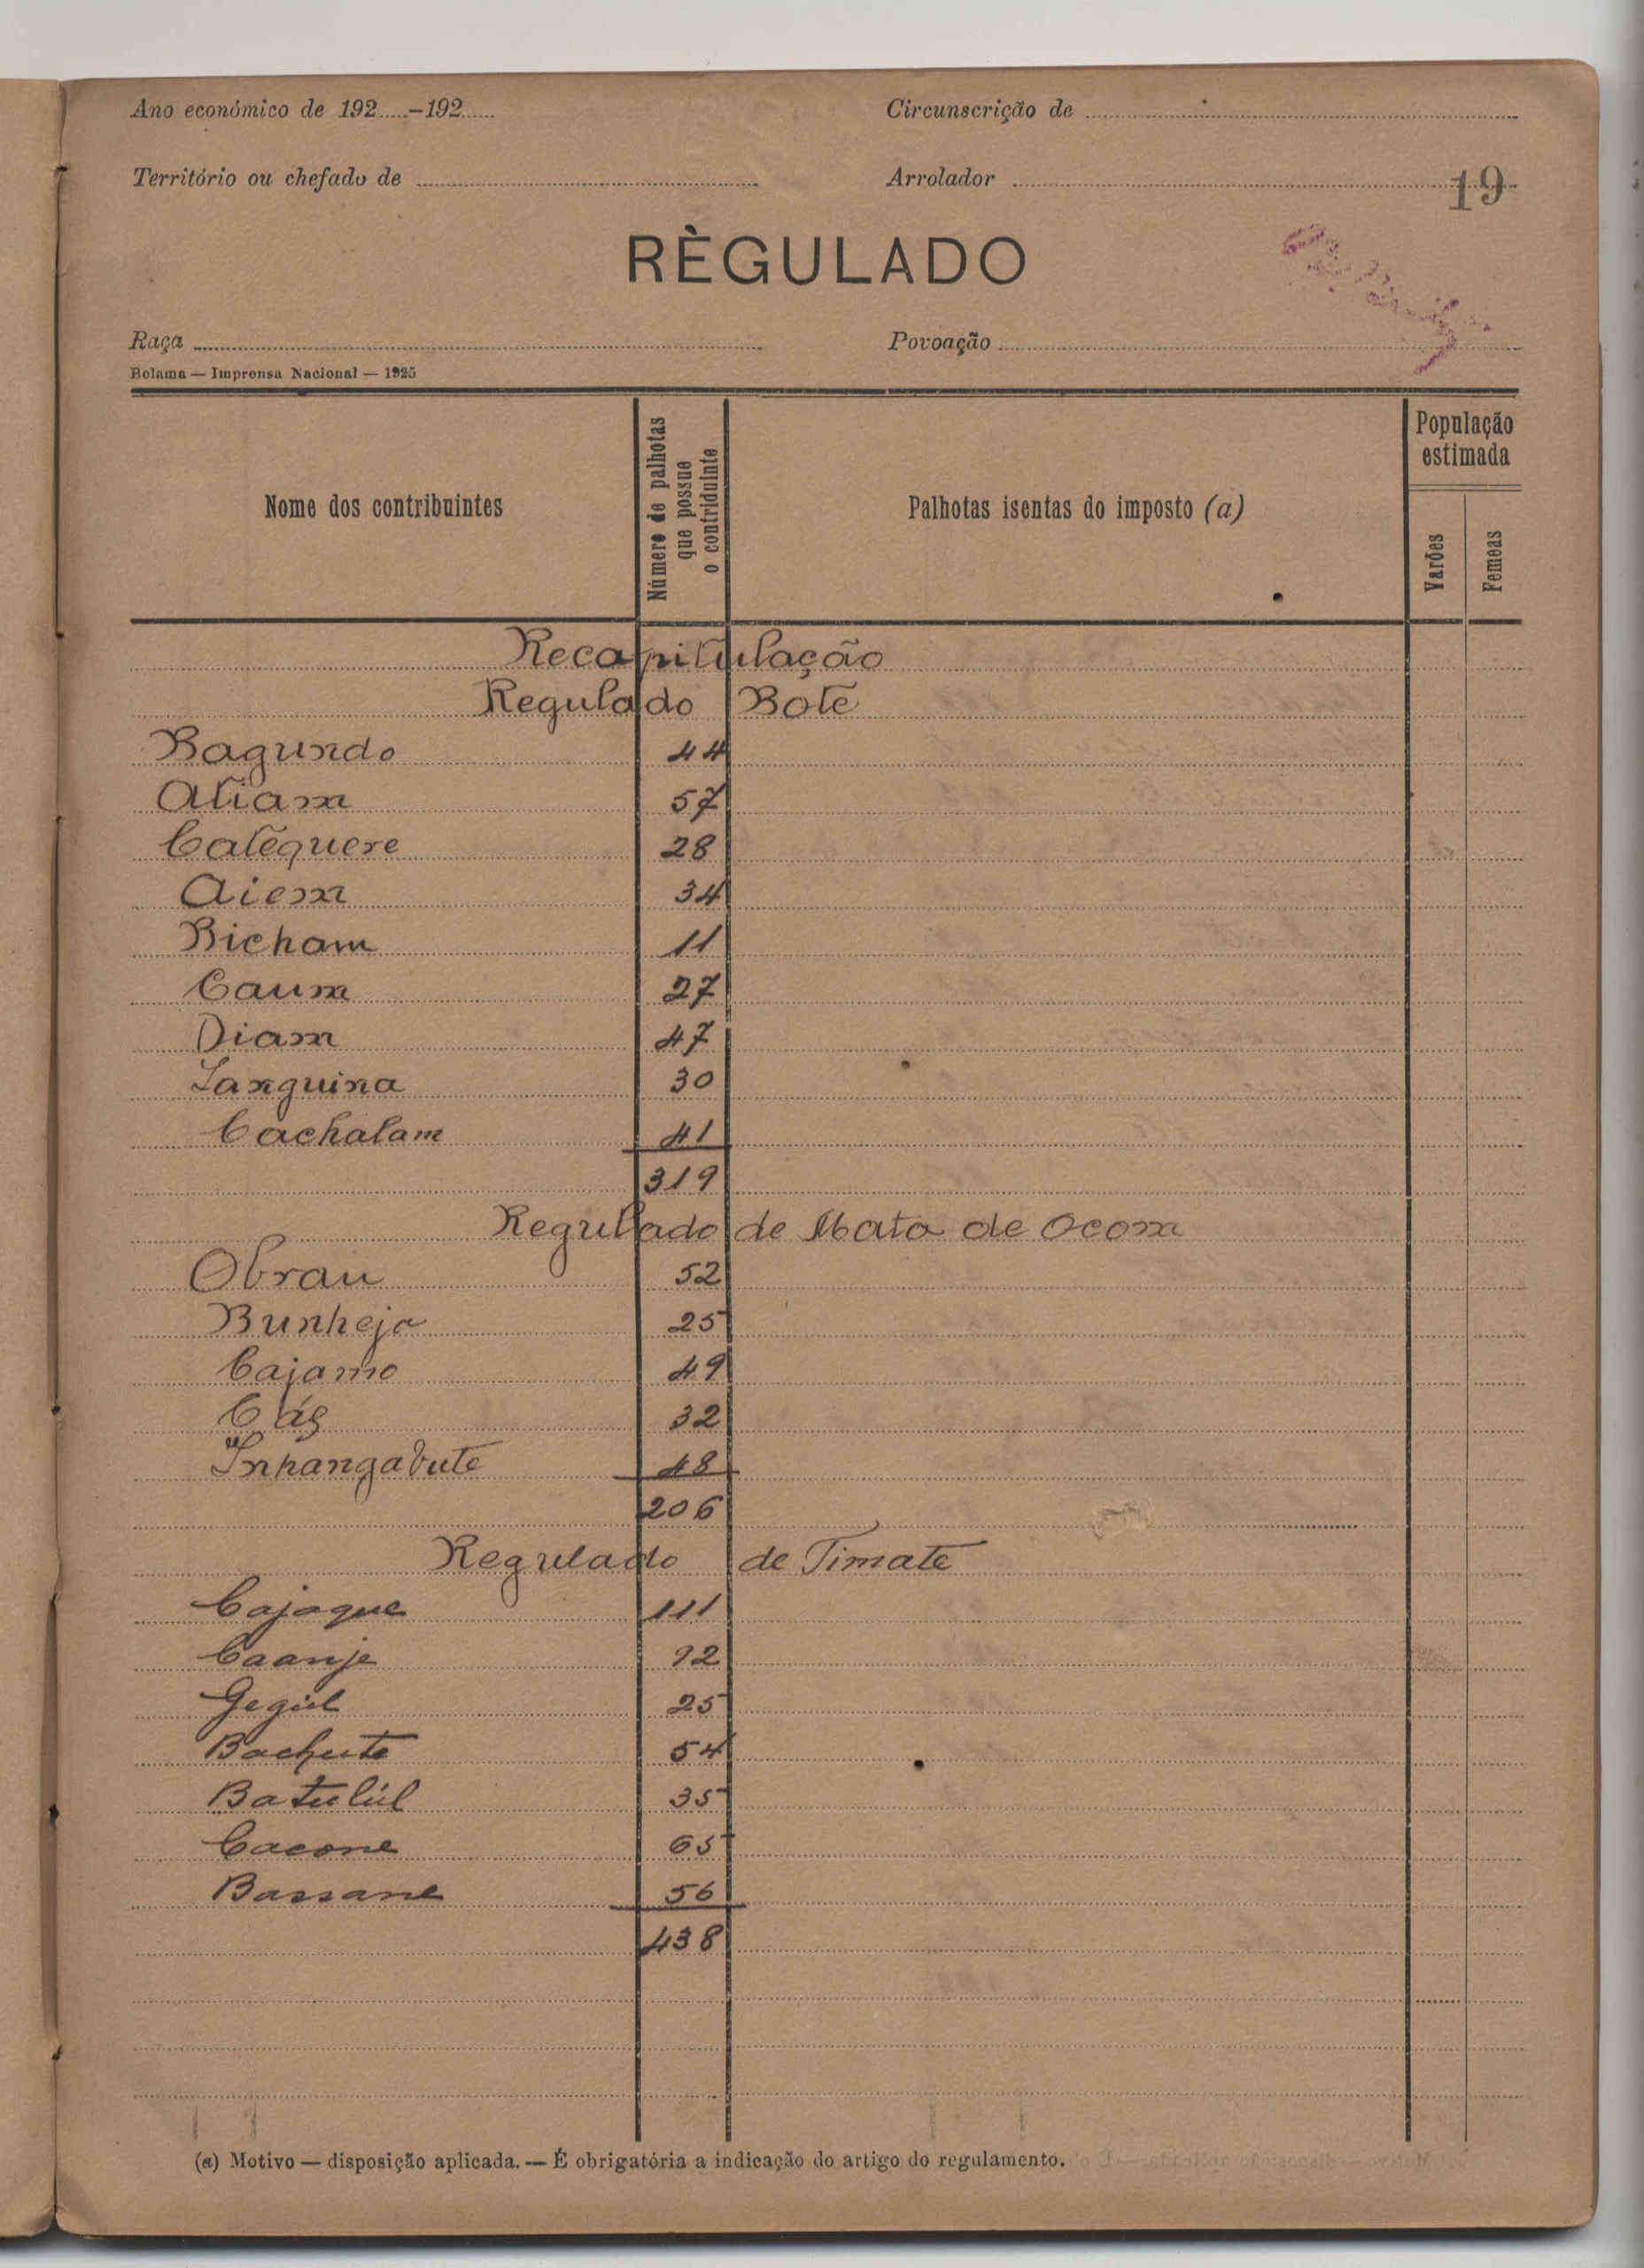 Ano económico de 192.....–192......
Circunscrição de
Território ou chefado de
Arrolador
19
RÈGULADO
Raça
Povoação
Bolama — Imprensa Nacional — 1925
Nome dos contribuintes
Número de palhotas
que possue
o contriduinte
Palhotas isentas do imposto (a)
População
estimada
Varões
Femeas
Recapitulação
Regulado Bote
Bagundo 44
Atiam 57
Catequere 28
Aiem 34
Bicham 11
Caum 27
Diam 47
Languina 30
Cachalam 41
319
Regulado de Mata de Ocom
Obrau 52
Bunheja 25
Cajamo 49
Cás 32
Inhangabute 48
206
Regulado de Timate
Cajaque 111
Caanje 92
Gegúl 25
Bachute 54
Batulúl 35
Cacone 65
Bassane 56
438
(a) Motivo — disposição aplicada. — É obrigatória a indicação do artigo do regulamento.